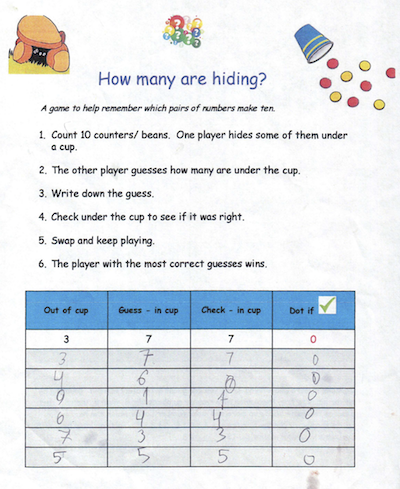 How many are hiding?
A game to help remember which pairs of numbers make ten.
1. Count 10 counters/ beans. One player hides some of them under
a cup.
2. The other player guesses how many are under the cup.
3. Write down the guess.
4. Check under the cup to see if it was right.
5. Swap and keep playing.
6. The player with the most correct guesses wins.
Out of cup Guess - in cup Check - in cup Dot if
3 7 7 0
3 7 7 0
4 6 0
9 1 1 0
6 4 4 0
7 3 3 0
5 5 5 0